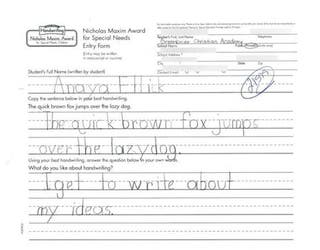 Handwriting
Nicholas Maxim Award
Nicholas Maxim Award
for Special Needs
Entry Form
Entry may be written
in manuscript or cursive
Christian Academy
Student's Full Name (written by student)
Anaya Ellick
Copy the sentence below in your best handwriting.
The quick brown fox jumps over the lazy dog.
The quick brown fox jumps
over the lazy dog.
Using your best handwriting, answer the question below in your own words.
What do you like about handwriting?
I get to write about
my ideas.